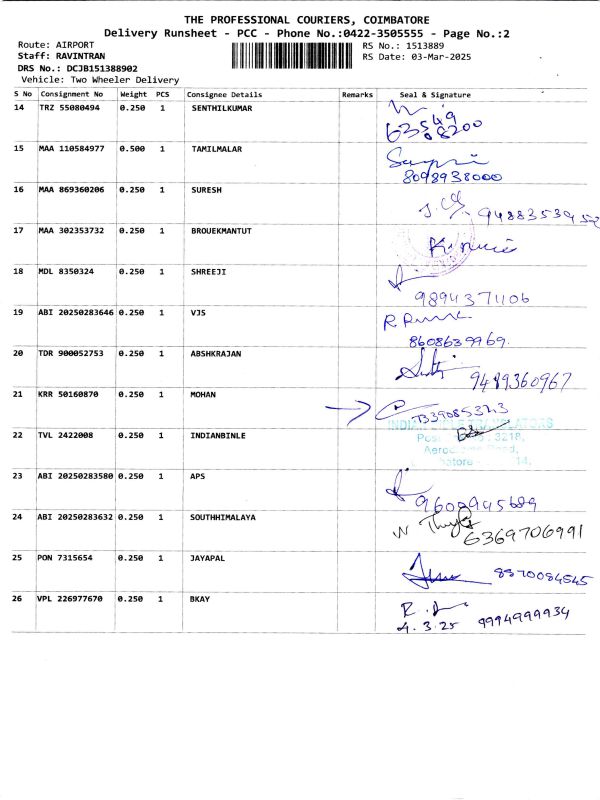 THE PROFESSIONAL COURIERS, COIMBATORE
Delivery Runsheet - PCC - Phone No.:0422-3505555 - Page No.:2
Route: AIRPORT RS No.: 1513889
Staff: RAVINTRAN RS Date: 03-Mar-2025
DRS No.: DCJB151388902
Vehicle: Two Wheeler Delivery
S No Consignment No Weight PCS Consignee Details Remarks Seal & Signature
14 TRZ 55080494 0.250 1 SENTHILKUMAR
15 MAA 110584977 0.500 1 TAMILMALAR
8098938000
16 MAA 869360206 0.250 1 SURESH
9488353952
17 MAA 302353732 0.250 1 BROUEKMANTUT
18 MDL 8350324 0.250 1 SHREEJI
9894371106
19 ABI 20250283646 0.250 1 VJS
8608639969.
20 TDR 900052753 0.250 1 ABSHKRAJAN
9489360967
21 KRR 50160870 0.250 1 MOHAN
7339085323
22 TVL 2422008 0.250 1 INDIANBINLE
3218,
14.
23 ABI 20250283580 0.250 1 APS
9600945689
24 ABI 20250283632 0.250 1 SOUTHHIMALAYA
6369706991
25 PON 7315654 0.250 1 JAYAPAL
8870084545
26 VPL 226977670 0.250 1 BKAY
4.3.25 9994999934